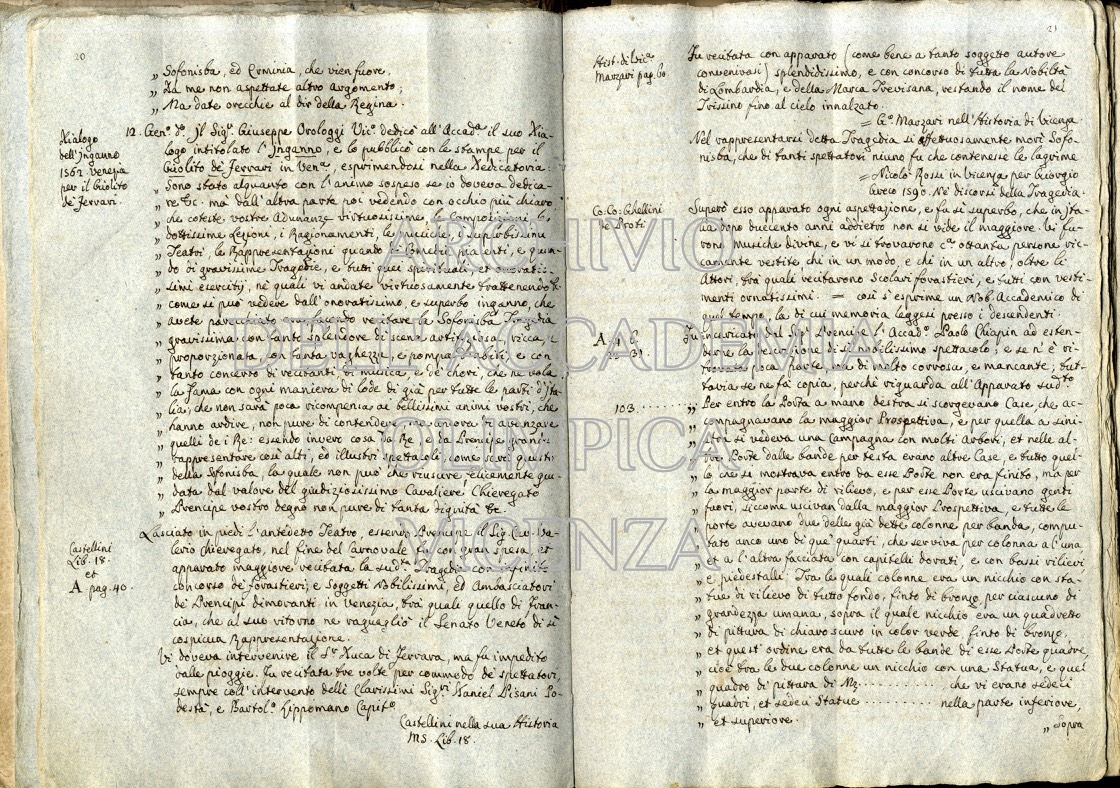 20
„ Sofonisba, ed Erminia, che vien fuore,
„ Da me non aspettate altro argomento;
„ Ma date orecchie al dir della Regina.
Dialogo
dell'Inganno
1562. Venezia
per il Giolito
de' Ferrari
12. Gen.º d.º Il Sig.r Giuseppe Orologgi Vic.º dedicò all'Accad.ª il suo Dia-
logo intitolato l'Inganno, e lo pubblicò con le stampe per il
Giolito de Ferrari in Ven.ª, esprimendosi nella Dedicatoria:
„ Sono stato alquanto con l'animo sospeso se io doveva dedica-
„ re &c. mà dall'altra parte poi vedendo con occhio più chiaro
„ che coteste vostre Adunanze virtuosissime, le Composizioni, le
„ dottissime Lezioni, i Ragionamenti, le Musiche, i superbissimi
„ Teatri, le Rappresentazioni quando di Comedie
„ do di gravissime Tragedie, e tutti quei spirituali, et onoratis-
„ simi esercitj, ne' quali vi andate virtuosamente trattenendo &c.
„ come si può vedere dall'onoratissimo, e superbo inganno, che
„ avete recitare la Sofonisba Tragedia
„ gravissima con tanto splendore di scena artifiziosa, ricca, e
„ proporzionata, con tanta vaghezza, e pompa d'abiti, e con
„ tanto concerto di recitanti di musica, e de' chori, che ne vola
„ la Fama con ogni maniera di lode di già per tutte le parti d'Ita-
„ lia; che non sarà poca ricompensa ai bellissimi animi vostri, che
„ hanno ardire, non pure di contendere, ma ancora d'avanzare
„ quelli de i Re: essendo invero cosa da Re, e da Prencipe grande
„ rappresentare così alti, ed illustri spettacoli, come sarà questi
„ della Sofonisba, la quale non può che riuscire felicemente gui-
„ data dal valore del giudiziosissimo Cavaliere Chieregato
„ Prencipe vostro degno non pure di tanta dignità &c.
Castellini
Lib. 18.
et
A pag. 40.
Lasciato in piedi l'antedetto Teatro, essendo Prencipe il Sig. Cav. Va-
lerio Chieregato, nel fine del Carnovale fù con gran spesa, et
apparato maggiore recitata la sud.ª Tragedia con infinito
concorso de' forastieri; e Soggetti Nobilissimi, ed Ambasciatori
de' Prencipi dimoranti in Venezia, trà quali quello di Fran-
cia, che al suo ritorno ne raguagliò il Senato Veneto di sì
cospicua Rappresentazione.
Vi doveva intervenire il S.r Duca di Ferrara, ma fu impedito
dalle pioggie. Fu recitata tre volte per commodo de' spettatori,
sempre coll'intervento delli Clarissimi Sig.ri Daniel Pisani Po-
destà, e Bartol.º Lippomano Capit.º
Castellini nella sua Historia
MS. Lib. 18.
21
Hist. di Vic.ª
Marzari pag. 60.
Fu recitata con apparato (come bene a tanto soggetto autore
convenivasi) splendidissimo, e con concorso di tutta la Nobiltà
di Lombardia, e della Marca Trevisana, restando il nome del
Trissino fino al cielo innalzato.
= G.º Marzari nell'Historia di Vicenza.
Nel rappresentarsi detta Tragedia sì affettuosamente morì Sofo-
nisba, che di tanti spettatori niuno fu che contenesse le lagrime
= Nicolò Rossi in Vicenza per Giorgio
Greco 1590. Ne' discorsi della Tragedia.
Co: Co: Ghellini
de Proti
Superò esso apparato ogni aspettazione, e fu sì superbo, che in Ita-
lia dopo duecento anni addietro non si vide il maggiore. Vi fu-
rono musiche divine, e vi si trovavono c.ª ottanta persone ric-
camente vestite chi in un modo, e chi in un altro, oltre li
Attori, trà quali recitarono Scolari forastieri, e tutti con vesti-
menti ornatissimi. = così s'esprime un Nob. Accademico di
quel tempo, la di cui memoria leggesi presso i descendenti.
A
Incaricati dal Sig.r Prencipe l'Accad.º Paolo Chiapin ad esten-
derne la relazione di sì nobilissimo spettacolo; e se n'è ri-
trovata poca parte, ma di molto corrosa, e mancante; tut-
tavia se ne fà copia, perchè riguarda all'Apparato sud.to
103 . . . . . . . .
„ Per entro la Porta a mano destra si scorgevano Case, che ac-
„ compagnavano la maggior Prospettiva, e per quella a sini-
„ stra si vedeva una Campagna con molti Arbori, et nelle al-
„ tre Porte dalle bande per testa erano altre Case, e tutto quel-
„ lo che si mostrava entro da esse Porte non era finito, ma per
„ la maggior parte di rilievo, e per esse Porte uscivano genti
„ fuori, siccome uscivan dalla maggior Prospettiva, e tutte le
„ porte avevano due delle già dette colonne per banda, compu-
„ tato anco uno di que' quarti, che serviva per colonna a l'una
„ et a l'altra facciata con capitelli dorati, e con bassi rilievi
„ e piedestalli. Tra le quali colonne era un nicchio con sta-
„ tue di rilievo di tutto fondo, finto di bronzo per ciascuno di
„ grandezza umana, sopra il quale nicchio era un quadretto
„ di pittura di chiaro scuro in color verde, finto di bronzo,
„ et quest'ordine era da tutte le bande di esse Porte quadre,
„ cioè tra le due colonne un nicchio con una Statua, e quel
„ quadro di pittura di Mz . . . . . . . . . . . che vi erano sedeci
„ quadri, et sedeci Statue . . . . . . . . . nella parte inferiore,
„ et superiore.
„ Sopra
ARCHIVIO
DELL'ACCADEMIA
OLIMPICA
VICENZA